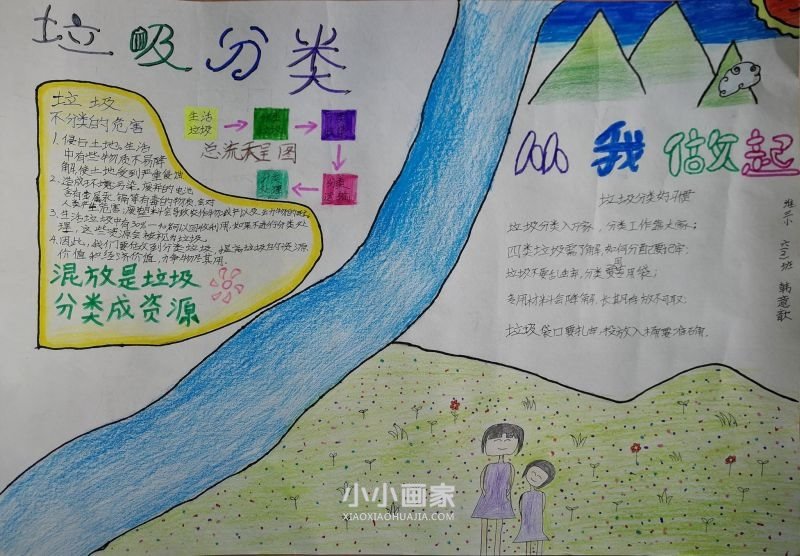 垃圾分类
垃圾
不分类的危害
1、侵占土地。生活
中有些物质不易降
解,使土地受到严重侵蚀
2、造成环境污染,废弃的电池
含有金属汞、镉等有毒的物质,会对
人类产生危害,
3、生活垃圾中有30%-40%可以回收利用,如果不进行分类处
理,这些资源会被视为垃圾。
4、因此,我们要做到分类垃圾,提高垃圾的资源
价值和经济价值,力争物尽其用。
混放是垃圾
分类成资源
生活
垃圾
总流程图
分类
处理
分类
从我做起
垃圾分类的习惯
垃圾分类入万家,分类工作靠大家;
四类垃圾需了解,如何分自己要记牢;
垃圾不要乱丢弃,分类要用袋;
专用材料会降解,长期存放不可取;
垃圾袋口要扎牢,投放入桶需准确。
六(三)班
韩意歌
小小画家
XIAOXIAOHUAJIA.COM